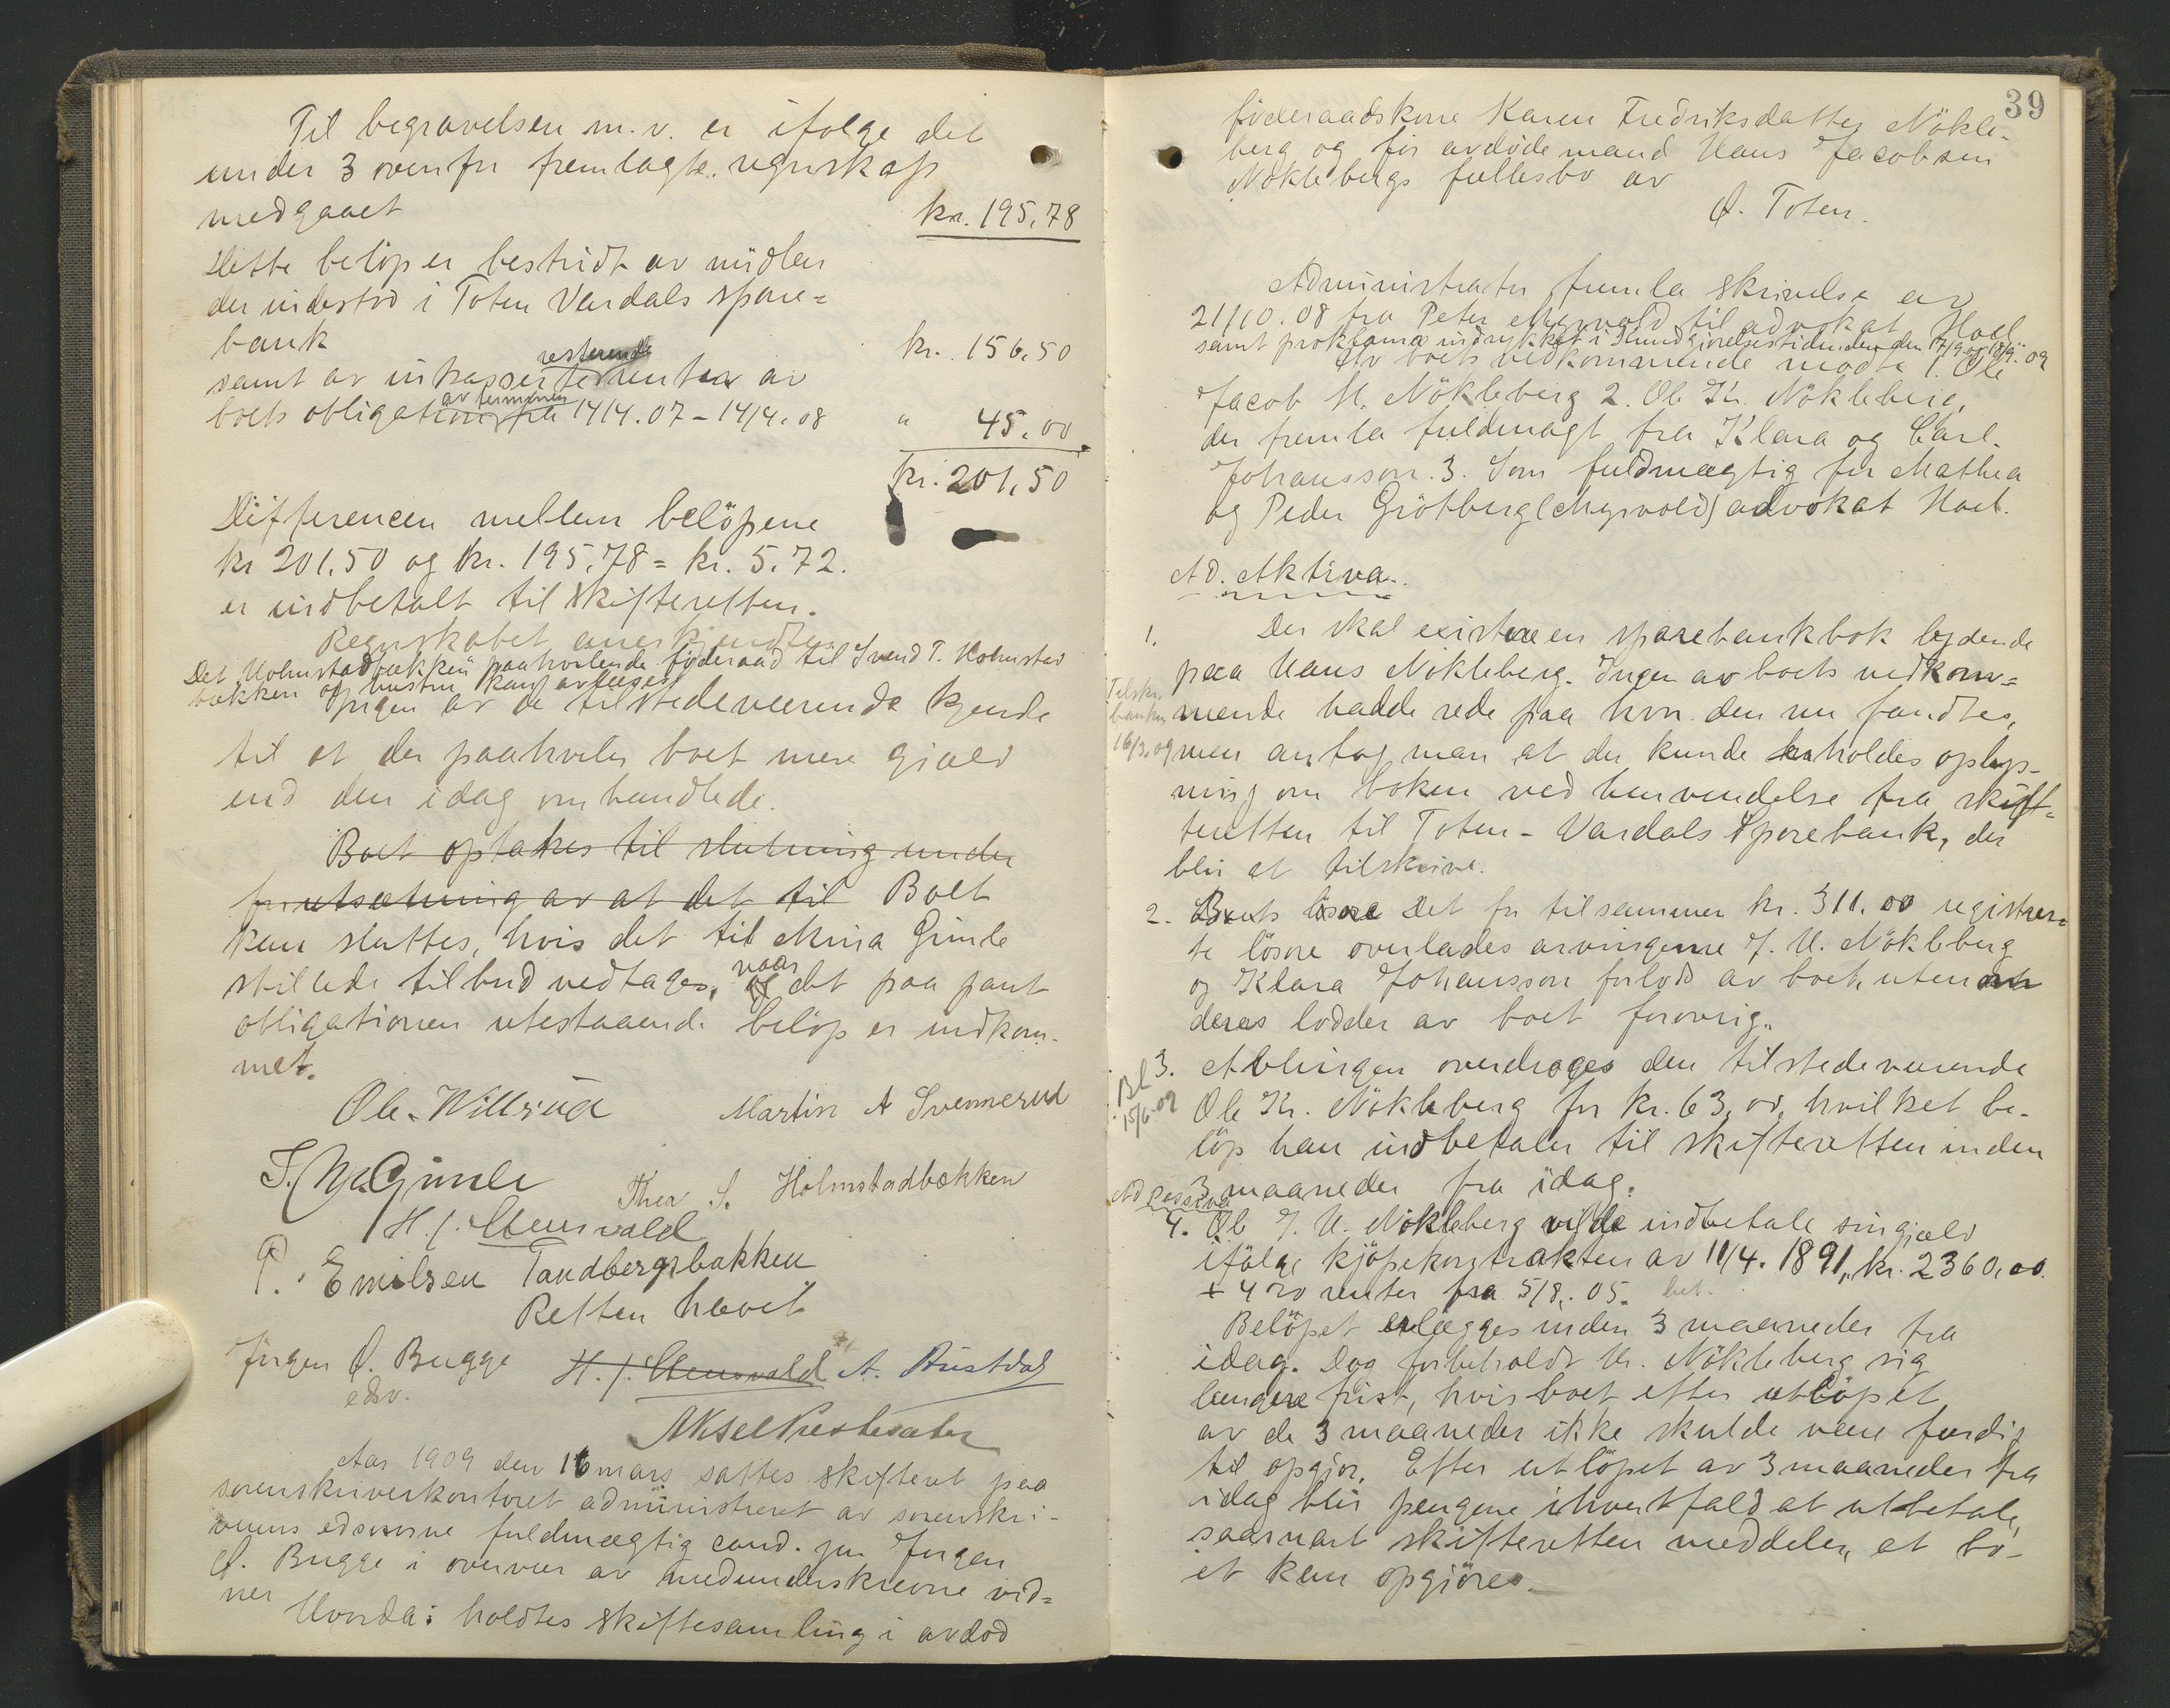 Til begravelsen m.v. er ifølge det
under 3 ovenfor fremlagte regnskap
medgaaet kr. 195,78
Dette beløp er bestridt av midler
der indestod i Toten Vardals spare=
bank kr. 156,50
resterende
samt av inkasserte renter av
av terminen
boets obligation fra 14/4.07 - 14/4.08 " 45.00
kr. 201,50
Differencen mellem belöpene
kr 201.50 og kr. 195,78 = kr. 5.72.
er indbetalt til skifteretten.
Regnskabet anerkjendtes
Det Holmstadbækken paahvilende föderaad til Svend T. Holmstad
bækken og hustru kan avlyses
Ingen av de tilstedeværende kjende
til at der paahviler boet mere gjæld
end den idag omhandlede.
Boet optakes til slutning under
forutsætning av at det til Boet
kan sluttes, hvis det til Mina Gimle
stillede tilbud vedtages, og naar det paa pant
obligationen utestaaende belöp er indkom-
met.
Ole Willrud Martin A Svennerud
Thea S. Holmstadbækken
H. J. Stensvald
P. Emilsen Tandbergsbakken
Retten hævet
Jörgen Ø. Bugge H. J. Stensvald A. Rustdal
edsv.
Aksel Prestesæter
Aar 1909 den 16 mars sattes skifteret paa
sorenskriverkontoret administreret av sorenskri-
verens edsvorne fuldmægtig cand. jur Jørgen
Ø. Bugge i overvær av medunderskrevne vid=
ner
Hvorda: holdtes skiftesamling i avdød
39
föderaadskone Karen Fredriksdatter Nökle-
berg og för avdöde mand Hans Jacobsen
Nöklebergs fællesbo av
Ø. Toten.
Administrator fremla skrivelse av
21/10.08 fra Peter Myrvold til advokat Hoel
samt proklama indrykket i Kundgjörelsestidenden den 17/9. og 18/9. 09
Av boets vedkommende mødte 1. Ole
Jacob H. Nökleberg 2. Ole Kr. Nökleberg,
der fremla fuldmagt fra Klara og Carl
Johansson. 3. Som fuldmægtig for Mathea
og Peder Grötberg (Myrvold) advokat Hoel.
Ad. Aktiva.
1. Der skal existere en sparebankbok lydende
paa Hans Nökleberg. Ingen av boets vedkom=
Tilskr.
banken
16/3.09
mende hadde rede paa hvor den nu fandtes,
men antog man at der kunde erholdes oplys-
ning om boken ved henvendelse fra skift=
teretten til Toten - Vardals Sparebank, der
blir at tilskrive.
2. Boets lösøre Det for tilsammen kr. 311.00 registrer=
te lösöre overlades arvingerne J. H. Nökleberg
og Klara Johansson forlods av boet, uten
deres lodder av boet forövrig.
3. Avlingen overdrages den tilstedeværende
Bl
15/6.09
Ole Kr. Nökleberg for kr. 63,00, hvilket be-
löp han indbetaler til skifteretten inden
3 maaneder fra idag.
Ad Passiva
4. Ole J. H. Nökleberg vilde indbetale sin gjæld
ifölge kjöpekontrakten av 11/4. 1891, kr. 2360,00
+ 4 % renter fra 5/8. 05. bet.
Belöpet erlægges inden 3 maaneder fra
idag. Dog forbeholdt Hr. Nökleberg sig
længere frist, hvis boet efter utlöpet
av de 3 maaneder ikke skulde være færdig
til opgjör. Efter utlöpet av 3 maaneder fra
idag blir pengene ihvertfald at utbetale,
saasnart skifteretten meddeler, at bo-
et kan opgjöres.